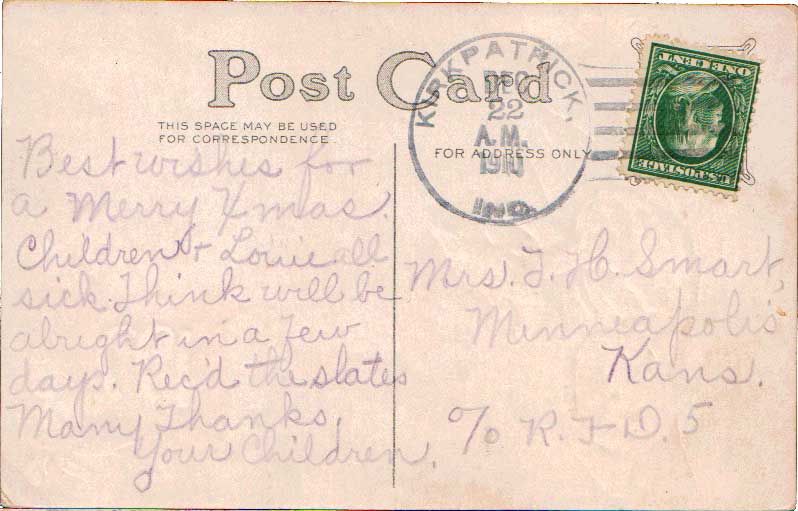 Post Card
THIS SPACE MAY BE USED
FOR CORRESPONDENCE
FOR ADDRESS ONLY
KIRKPATRICK,
DEC
22
A.M.
1910
IND.
ONE CENT
U.S. POSTAGE
Best wishes for
a Merry Xmas.
Children & Louie all
sick. Think will be
alright in a few
days. Rec'd the slates
Many Thanks.
Your Children.
Mrs. J. H. Smart,
Minneapolis
Kans.
c/o R.F.D. 5